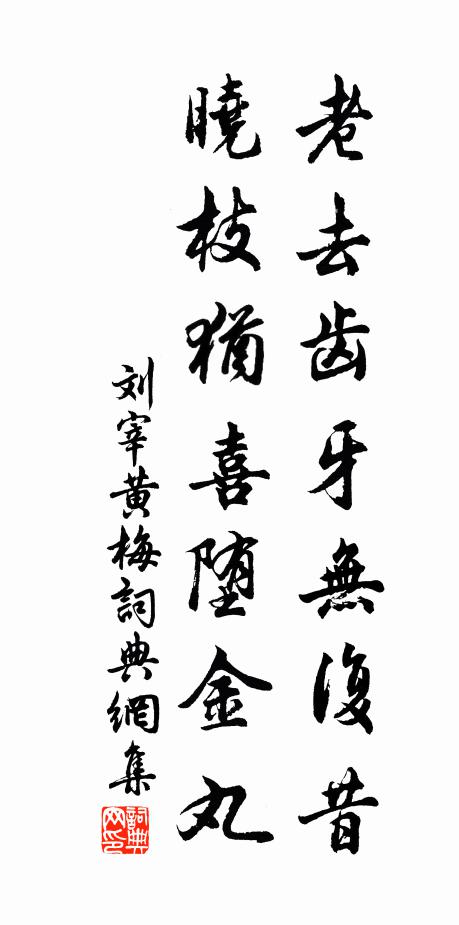 老去齿牙無復昔
曉枝猶喜堕金丸
刘宰黄梅詞典網集
詞典网印